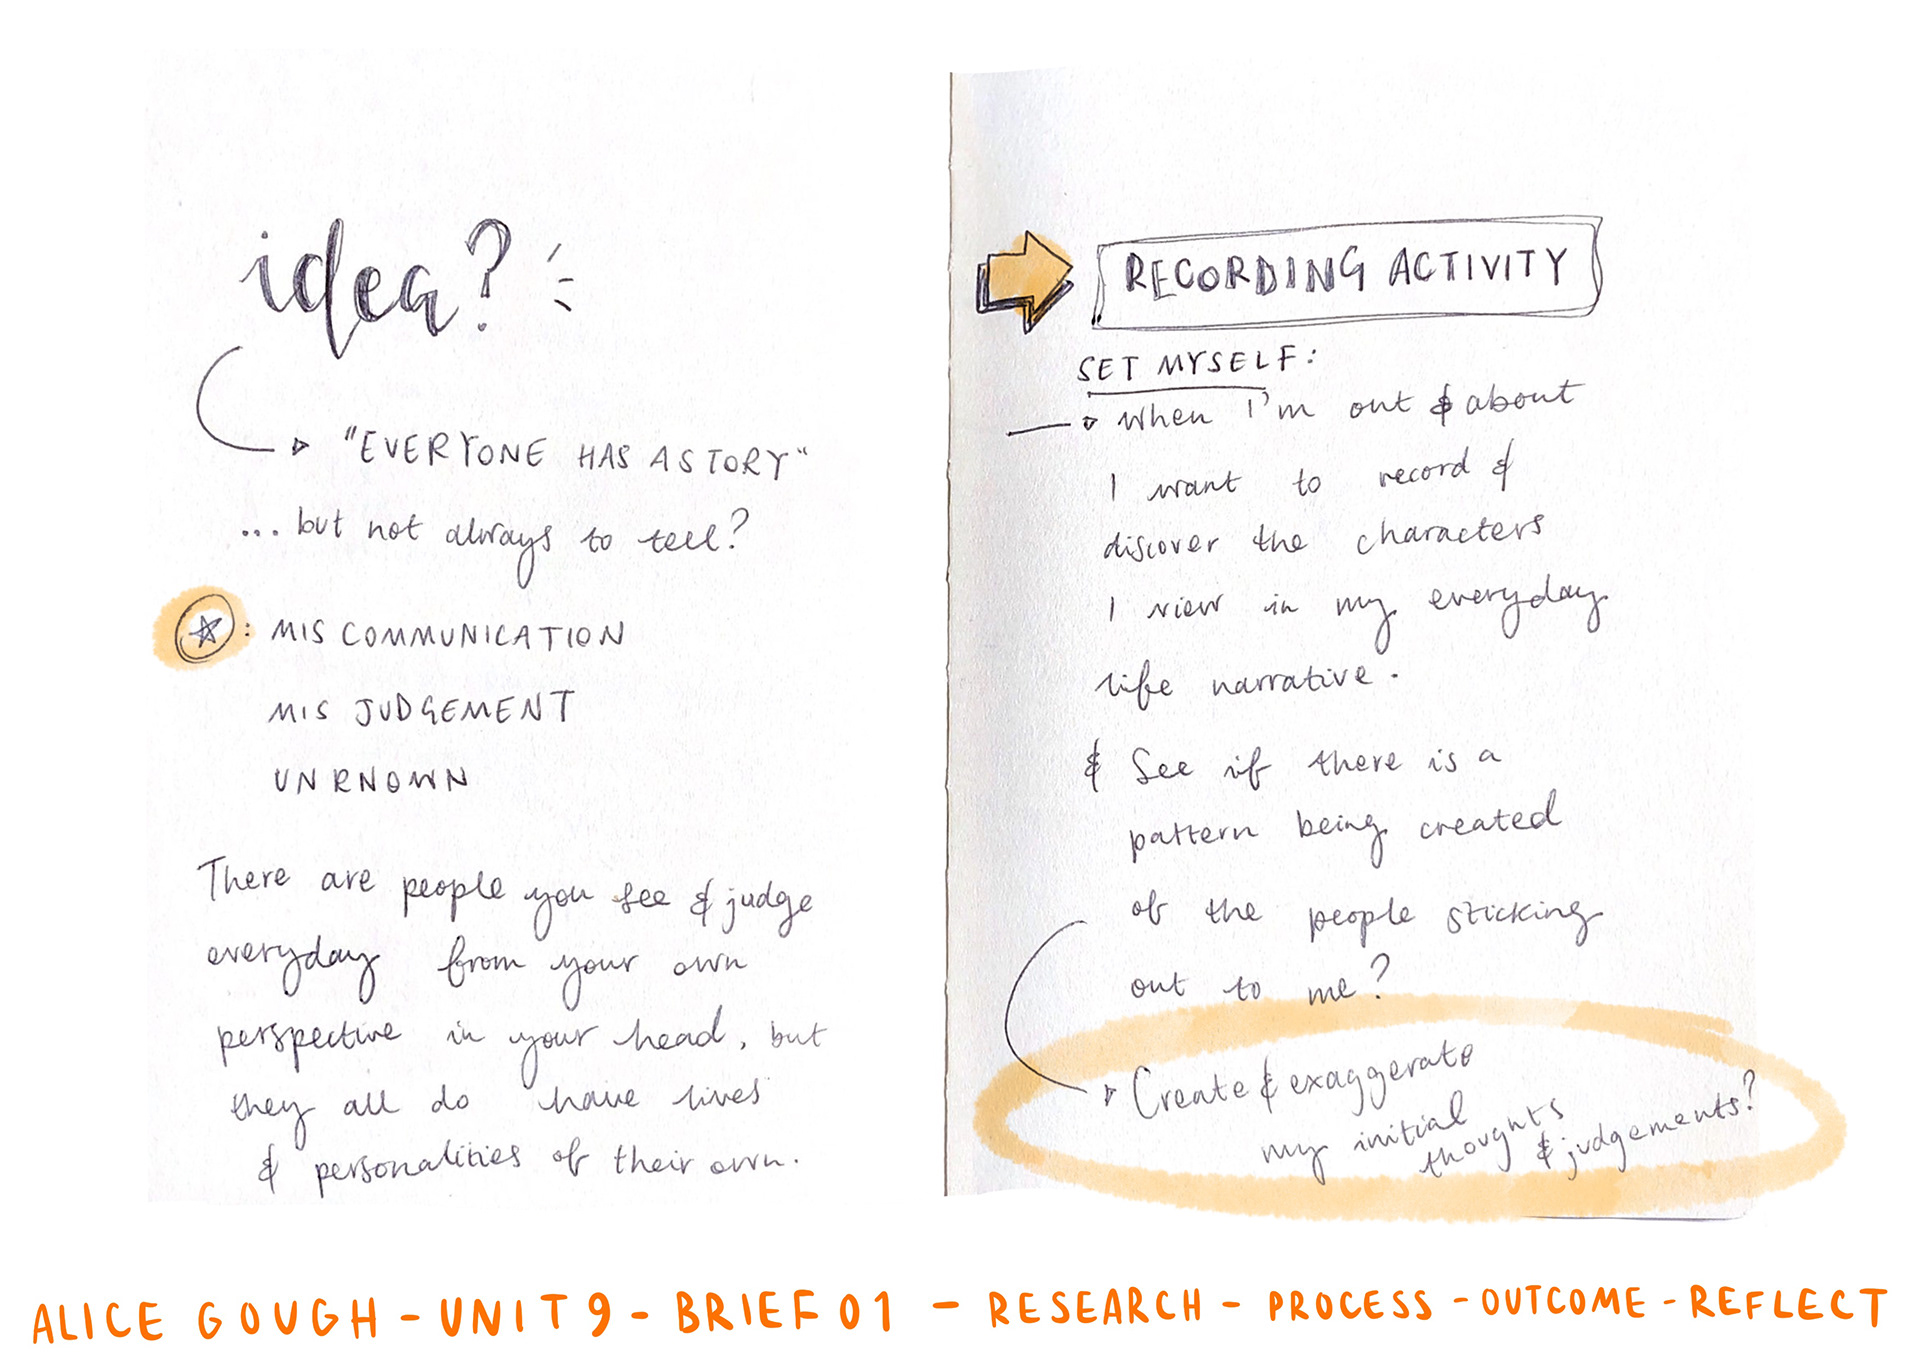 idea?
"EVERYONE HAS A STORY"
... but not always to tell?
: MISCOMMUNICATION
MIS JUDGEMENT
UNKNOWN
There are people you see & judge
everyday from your own
perspective in your head, but
they all do have lives
& personalities of their own.
RECORDING ACTIVITY
SET MYSELF:
when I'm out & about
I want to record &
discover the characters
I view in my everyday
life narrative.
& See if there is a
pattern being created
of the people sticking
out to me?
Create & exaggerate
my initial
thoughts
& judgements?
ALICE GOUGH - UNIT 9 - BRIEF 01 - RESEARCH - PROCESS - OUTCOME - REFLECT